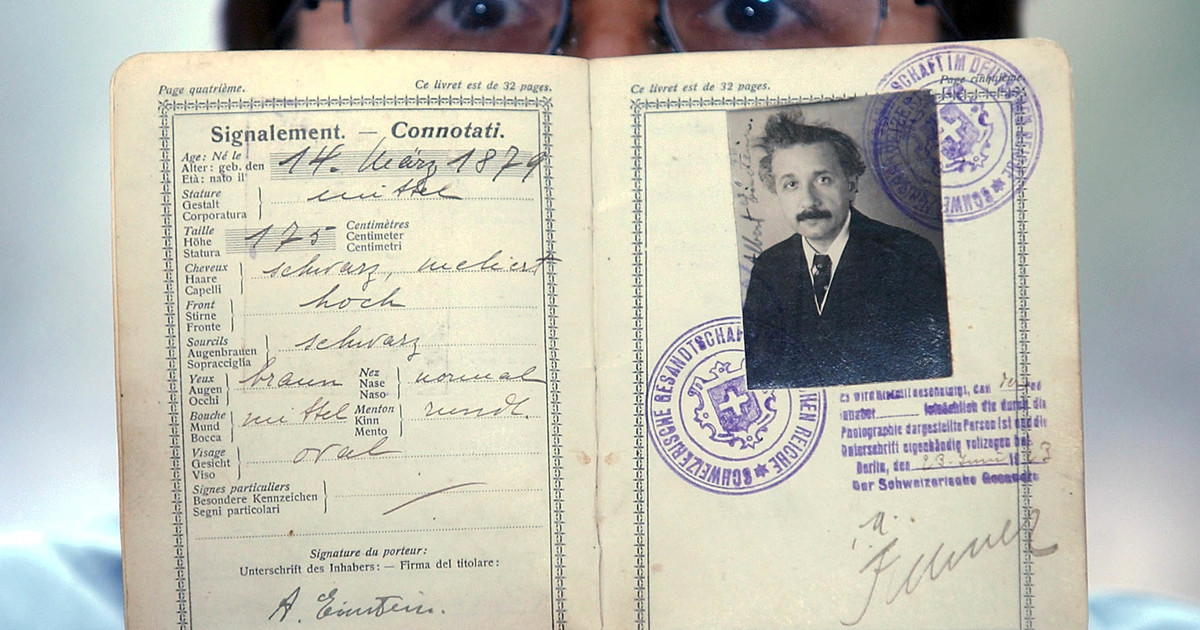 Page quatrième. Ce livret est de 32 pages.
Signalement. — Connotati.
Age: Né le
Alter: geb. den 14. März 1879
Età: nato il
Stature
Gestalt mittel
Corporatura
Taille Centimètres
Höhe 175 Centimeter
Statura Centimetri
Cheveux
Haare schwarz, meliert
Capelli
Front
Stirne hoch
Fronte
Sourcils
Augenbrauen schwarz
Sopracciglia
Yeux Nez
Augen braun Nase normal
Occhi Naso
Bouche Menton
Mund mittel Kinn rundl.
Bocca Mento
Visage
Gesicht oval
Viso
Signes particuliers
Besondere Kennzeichen
Segni particolari
Signature du porteur:
Unterschrift des Inhabers: — Firma del titolare:
A. Einstein.
Ce livret est de 32 pages. Page cinquième.
SCHAFT IM DEU
EN REICHE ★ SCHWEIZ
Albert Einstein
SCHWEIZERISCHE GESANDTSCHAF
HEN REICHE ★
Es wird hiemit bescheinigt, dass der
Inhaber die durch die
Photographie dargestellte Person ist und die
Unterschrift eigenhändig vollzogen hat
Berlin, den 23. Juni 1923
Der Schweizerische Gesandte